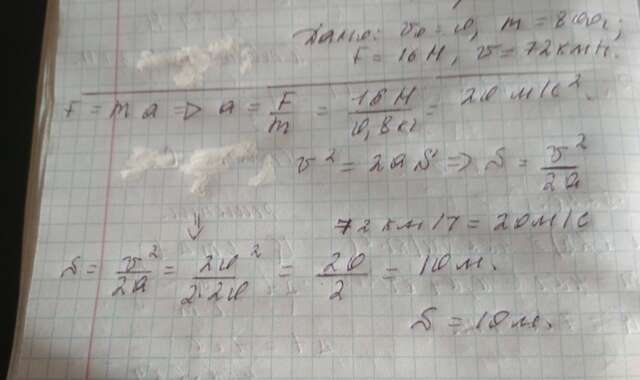 Дано: v₀ = 0, m = 800г;
F = 16 Н, v = 72 км/ч.
F = ma => a = F/m = 16 Н/0,8 кг = 20 м/с².
v² = 2aS => S = v²/2a
72 км/ч = 20 м/с
⇓
S = v²/2a = 20²/2·20 = 20/2 = 10 м.
S = 10 м.